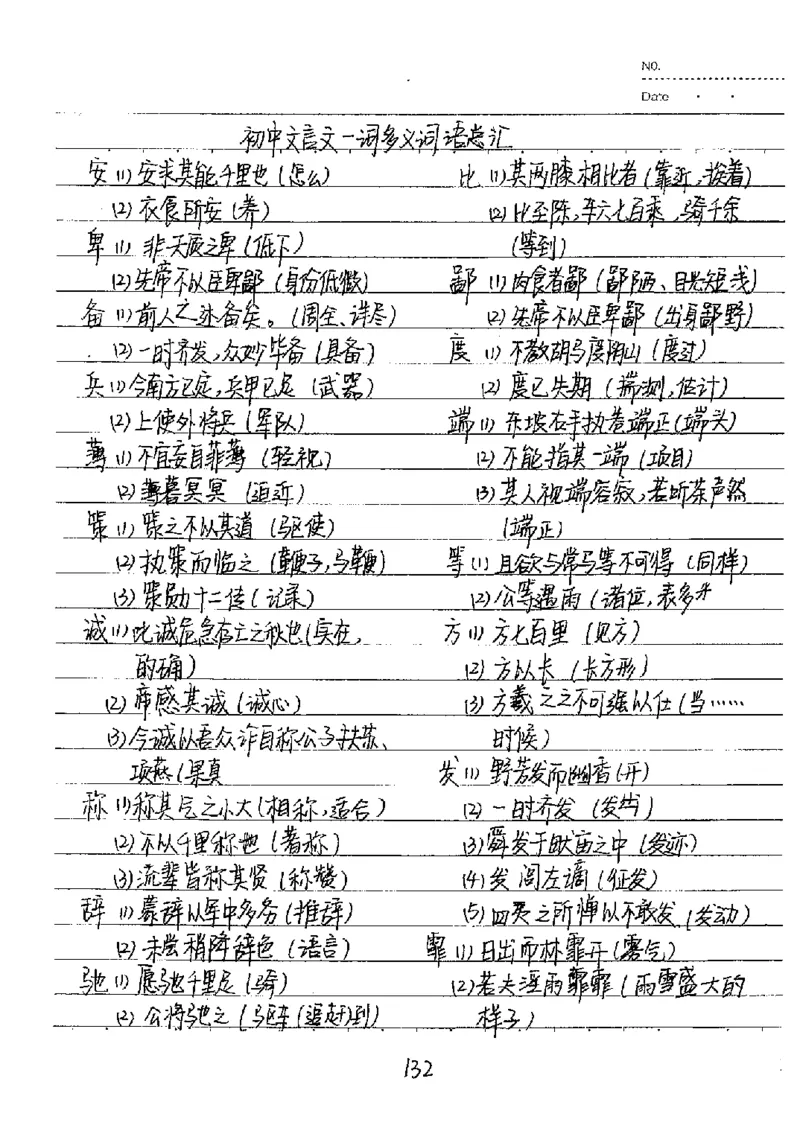 NO.
Date
初中文言文一词多义词语总汇
安 (1) 安求其能千里也 (怎么)
(2) 衣食所安 (养)
卑 (1) 非天质之卑 (低下)
(2) 先帝不以臣卑鄙 (身份低微)
备 (1) 前人之述备矣。(周全、详尽)
(2) 一时齐发,众妙毕备 (具备)
兵 (1) 今南方已定,兵甲已足 (武器)
(2) 上使外将兵 (军队)
薄 (1) 不宜妄自菲薄 (轻视)
(2) 薄暮冥冥 (迫近)
策 (1) 策之不以其道 (驱使)
(2) 执策而临之 (鞭子,马鞭)
(3) 策勋十二传 (记录)
诚 (1) 此诚危急存亡之秋也 (实在,
的确)
(2) 帝感其诚 (诚心)
(3) 今诚以吾众诈自称公子扶苏、
项燕 (果真
称 (1) 称其气之小大 (相称,适合)
(2) 不以千里称也 (著称)
(3) 流辈皆称其贤 (称赞)
辞 (1) 蒙辞以军中多务 (推辞)
(2) 未尝稍降辞色 (语言)
驰 (1) 愿驰千里足 (骑)
(2) 公将驰之 (驱车(追赶)到)
比 (1) 其两膝相比者 (靠近,挨着)
(2) 比至陈,车六七百乘,骑千余
(等到)
鄙 (1) 肉食者鄙 (鄙陋、目光短浅)
(2) 先帝不以臣卑鄙 (出身鄙野)
度 (1) 不教胡马度阴山 (度过)
(2) 度已失期 (揣测,估计)
端 (1) 东坡右手执卷端正 (端头)
(2) 不能指其一端 (项目)
(3) 其人视端容寂,若听茶声然
(端正)
等 (1) 且欲与常马等不可得 (同样)
(2) 公等遇雨 (诸位,表多
方 (1) 方七百里 (见方)
(2) 方以长 (长方形)
(3) 方羲之之不可强以仕 (当……
时候)
发 (1) 野芳发而幽香 (开)
(2) 一时齐发 (发出)
(3) 舜发于畎亩之中 (发迹)
(4) 发闾左谪 (征发)
(5) 四美之所惮以不敢发 (发动)
霏 (1) 日出而林霏开 (雾气)
(2) 若夫淫雨霏霏 (雨雪盛大的
样子)
132